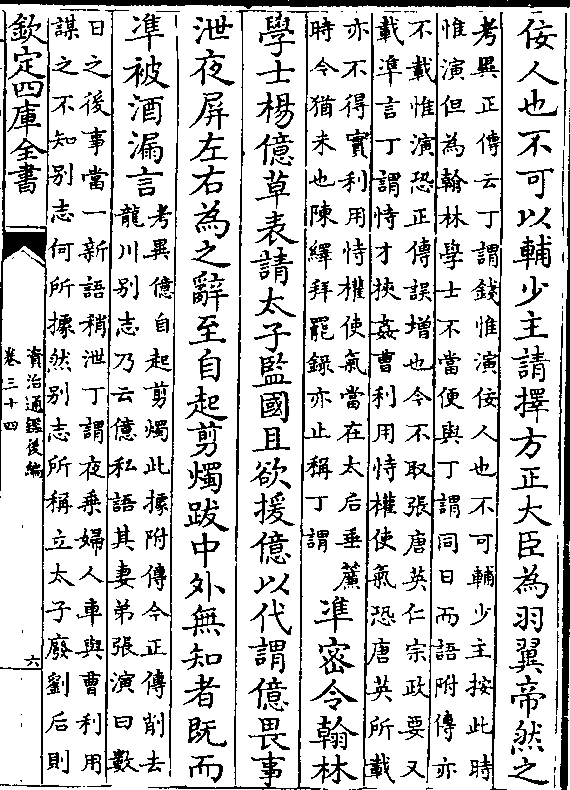 佞人也不可以輔少主請擇方正大臣為羽翼帝然之
考異正傳云丁謂錢惟演佞人也不可輔少主按此時
惟演但為翰林學士不當便與丁謂同日而語附傳亦
不載惟演恐正傳誤增也今不取張唐英仁宗政要又
載準言丁謂恃才挾姦曹利用恃權使氣恐唐英所載
亦不得實利用恃權使氣當在太后垂簾
時令猶未也陳繹拜罷録亦止稱丁謂
準密令翰林
學士楊億草表請太子監國且欲援億以代謂億畏事
泄夜屏左右為之辭至自起剪燭跋中外無知者既而
準被酒漏言
考異億自起剪燭此據附傳今正傳削去
龍川别志乃云億私語其妻弟張演曰數
日之後事當一新語稍泄丁謂夜乗婦人車與曹利用
謀之不知别志何所據然别志所稱立太子廢劉后則
欽定四庫全書
資治通鑑後編
卷三十四
六